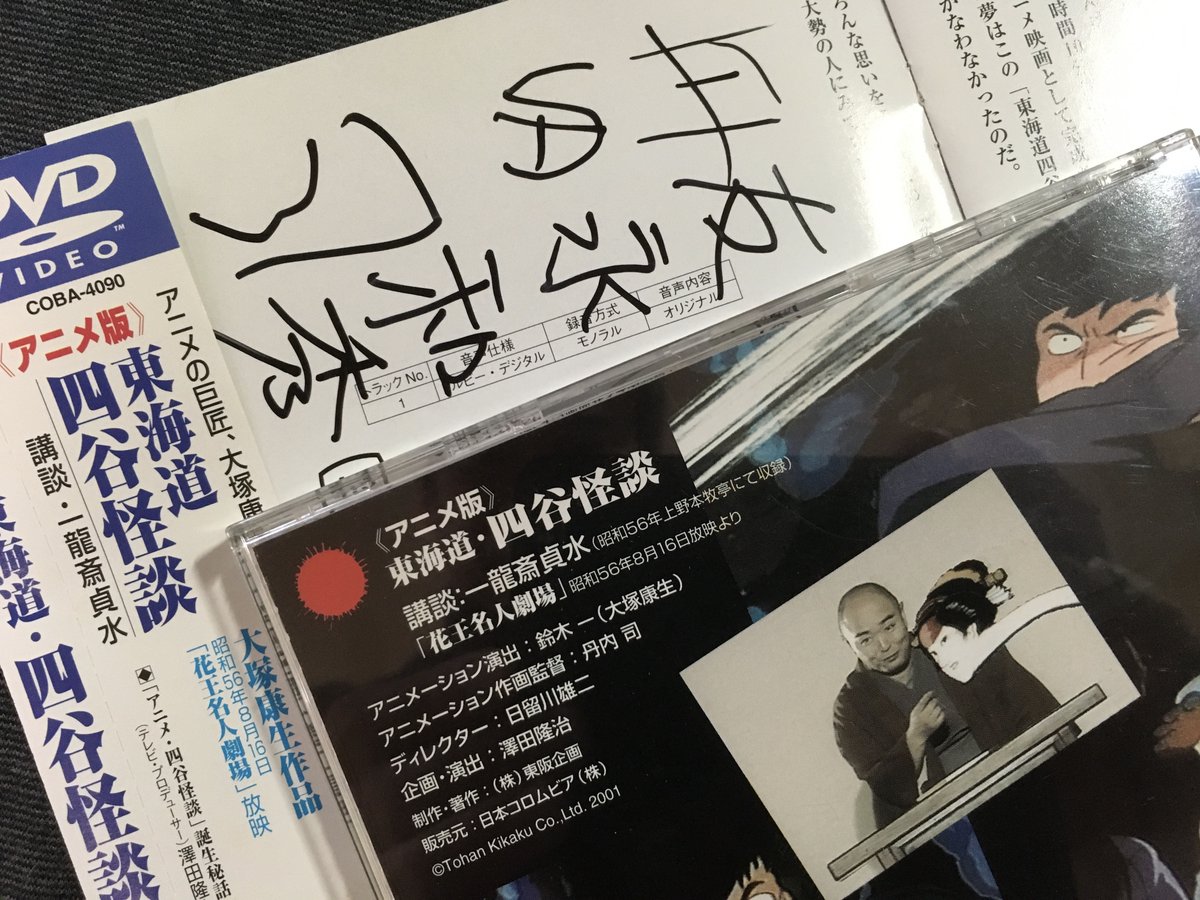 DVD
VIDEO
COBA-4090
《アニメ版》
東海道
四谷怪談
講談・一龍斎貞水
アニメの巨匠、大塚康
大塚康生作品
昭和56年8月16日
「花王名人劇場」放映
◆「アニメ・四谷怪談」誕生秘話
(テレビ・プロデューサー)澤田隆
東海道・四谷怪談
ろんな思いを
大勢の人に
時間
ニメ映画として完成
夢はこの「東海道四谷
かなわなかったのだ。
トラックNo.
音声仕様
録音方式
音声内容
1
ドルビー・デジタル
モノラル
オリジナル
《アニメ版》
東海道・四谷怪談
講談:一龍斎貞水(昭和56年上野本牧亭にて収録)
「花王名人劇場」昭和56年8月16日放映より
アニメーション演出:鈴木 一(大塚康生)
アニメーション作画監督:丹内 司
ディレクター:日留川雄二
企画・演出:澤田隆治
制作・著作:(株)東阪企画
販売元:日本コロムビア(株)
©Tohan Kikaku Co.,Ltd. 2001